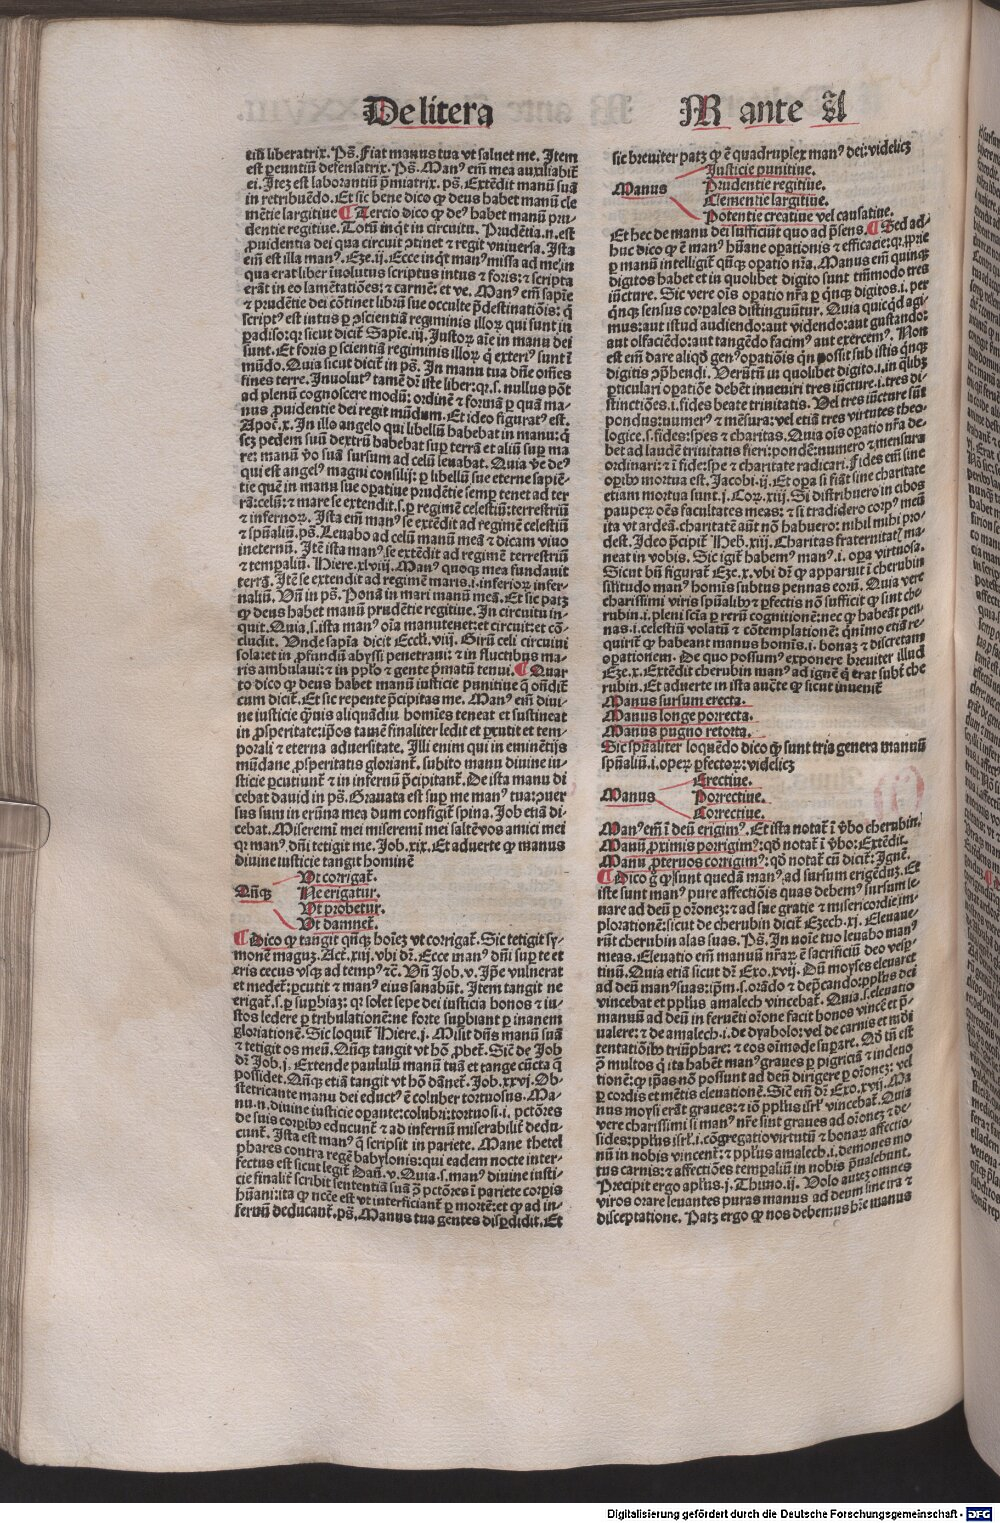 De litera M ante A
tiū liberatrix. Ps̄. Fiat manus tua vt saluet me. Item
est peuntiū defensatrix. Ps̄. Manꝰ em̄ mea auxiliabit̄
ei. Itez est laborantiū p̄miatrix. ps̄. Extēdit manū suā
in retribuēdo. Et sic bene dico ꝙ deus habet manū cle
mētie largitiue ¶ Tercio dico ꝙ deꝰ habet manū pru-
dentie regitiue. Totū inq̄t in circuitu. Prudētia.n.est
ꝓuidentia dei qua circuit ꝯtinet ⁊ regit vniuersa. Ista
em̄ est illa manꝰ. Eze.ij. Ecce inq̄t manꝰ missa ad me:in
qua erat liber īuolutus scriptus intus ⁊ foris: ⁊ scripta
erāt in eo lamētatiōes: ⁊ carmē: et ve. Manꝰ em̄ sapiē
⁊ prudētie dei cōtinet librū sue occulte p̄destinatiōis: q̄
scriptꝰ est intus p ꝯscientiā regiminis illoꝝ qui sunt in
padiso: qꝛ sicut dicit̄ Sapiē.iij. Iustoꝝ aīe in manu dei
sunt. Et foris p scientiā regiminis illoꝝ q̄ exteriꝰ sunt ī
mūdo. Quia sicut dicit̄ in ps̄. In manu tua dn̄e om̄es
fines terre. Inuolutꝰ tamē dr̄ iste liber: qꝛ.s. nullus pōt
ad plenū cognoscere modū: ordinē ⁊ formā p quā ma-
nus ꝓuidentie dei regit mūdum. Et ideo figuratꝰ est.
Apoc̄.x. In illo angelo qui libellū habebat in manu: q̄
sez pedem suū dextrū habebat sup terrā et aliū sup ma
re: manū v̄o suā sursum ad celū leuabat. Quia v̄e deꝰ
qui est angelꝰ magni consilij: p libellū sue eterne sapiē-
tie quē in manu sue opatiue prudētie semp tenet ad ter
rā: celū: ⁊ mare se extendit.s.p regimē celestiū: terrestriū
⁊ infernoꝝ. Ista em̄ manꝰ se extēdit ad regimē celestiū
⁊ sp̄ualiū. ps̄. Leuabo ad celū manū meā ⁊ dicam viuo
ineternū. Itē ista manꝰ se extēdit ad regimē terrestriū
⁊ tempaliū. Hiere.xlviij. Manꝰ quoqꝫ mea fundauit
terrā. Itē se extendit ad regimē maris.i.inferioꝝ infer-
naliū. Vn̄ in ps̄. Ponā in mari manū meā. Et sic patꝫ
ꝙ deus habet manū prudētie regitiue. In circuitu in-
quit. Quia.s.ista manꝰ oīa manutenet: et circuit: et cō-
cludit. Vnde sapīa dicit Eccli.viij. Girū celi circuiui
sola: et in ꝓfundū abyssi penetraui: ⁊ in fluctibus ma-
ris ambulaui: ⁊ in pplo ⁊ gente p̄matū tenui. ¶ Quar
to dico ꝙ deus habet manū iusticie punitiue q̄ ondit̄
cum dicit. Et sic repente p̄cipitas me. Manꝰ em̄ diui-
ne iusticie q̄uis aliquādiu homīes teneat et sustineat
in ꝓsperitate: ip̄os tamē finaliter ledit et pcutit et tem-
porali ⁊ eterna aduersitate. Illi enim qui in eminētijs
mūdane ꝓsperitatis gloriant̄. subito manu diuine iu-
sticie pcutiunt̄ ⁊ in infernū p̄cipitant̄. De ista manu di
cebat dauid in ps̄. Grauata est sup me manꝰ tua: ꝯuer
sus sum in erūna mea dum configit̄ spina. Job etiā di-
cebat. Miseremī mei miseremī mei saltē vos amici mei
qꝛ manꝰ dn̄i tetigit me. Job.xix. Et aduerte ꝙ manus
diuine iusticie tangit hominē
Vt corrigat̄.
Ne erigatur.
Vt probetur.
Vt damnet̄.
Qn̄qꝫ
¶ Dico ꝙ tangit qn̄qꝫ hoīez vt corrigat̄. Sic tetigit sy-
monē maguz. Act̄.xiij. vbi dr̄. Ecce manꝰ dn̄i sup te et
eris cecus vsqꝫ ad tempꝰ ⁊c̄. Vn̄ Job.v. Ipse vulnerat
et medet̄: pcutit ⁊ manꝰ eius sanabūt. Item tangit ne
erigat̄.s.p supbiaz: qꝛ solet sepe dei iusticia bonos ⁊ iu-
stos ledere p tribulationē: ne forte supbiant p inanem
gloriationē. Sic loquit̄ Hiere.j. Misit dn̄s manū suā
⁊ tetigit os meū. Qn̄qꝫ tangit vt hō ꝓbet̄. Sic̄ de Job
dr̄ Job.j. Extende paululū manū tuā et tange cūcta q̄
possidet. Qn̄qꝫ etiā tangit vt hō dānet̄. Job.xxvi. Ob-
stetricante manu dei eductꝰ ē coluber tortuosus. Ma-
nu.n.diuine iusticie opante: colubri: tortuosi.i.pctōres
de suis corpibꝰ educunt̄ ⁊ ad infernū miserabilit̄ dedu-
cunt̄. Ista est manꝰ q̄ scripsit in pariete. Mane thetel
phares contra regē babylonis: qui eadem nocte inter-
fectus est sicut legit̄ Dan̄.v. Quia.s.manꝰ diuine iusti-
cie finalit̄ scribit sententiā suā ꝯ pctōres ī pariete corpis
hūani: ita ꝙ necē est vt interficiant̄ p mortē: et ꝙ ad in-
fernū deducant̄. ps̄. Manus tua gentes disperdidit. Et
sic breuiter patꝫ ꝙ ē quadruplex manꝰ dei: videlicꝫ
Iusticie punitiue.
Manus
Prudentie regitiue.
Clementie largitiue.
Potentie creatiue vel causatiue.
Et hec de manu dei sufficiūt quo ad p̄sens. ¶ Sed ad-
huc dico ꝙ ē manꝰ hūane opationis ⁊ efficacie: qꝛ ꝓprie
p manū intelligit̄ qn̄qꝫ opatio nr̄a. Manus em̄ quinqꝫ
digitos habet et in quolibet digito sunt tm̄modo tres
iūcture. Sic vere oīs opatio nr̄a p q̄nqꝫ digitos.i.per
q̄nqꝫ sensus corpales distinguūtur. Quia quicqd agi-
mus: aut istud audiendo: aut videndo: aut gustando:
aut olfaciēdo: aut tangēdo facimꝰ aut exercemꝰ. Non
est em̄ dare aliqd genꝰ opatiōis qn̄ possit sub istis q̄nqꝫ
digitis ꝯp̄hendi. Verūtn̄ in quolibet digito.i.in q̄libꝫ
pticulari opatiōe debēt inueniri tres iūcture.i.tres di-
stinctiōes.i.fides beate trinitatis. Vel tres iūcture sūt
pondus: numerꝰ ⁊ mēsura: vel etiā tres virtutes theo-
logice.s.fides: spes ⁊ charitas. Quia oīs opatio nr̄a de
bet ad laudē trinitatis fieri: pondē: numero ⁊ mensura
ordinari: ⁊ ī fide: spe ⁊ charitate radicari. Fides em̄ sine
opibꝰ mortua est. Jacobi.ij. Et opa si fiāt sine charitate
etiam mortua sunt.j. Cor.xiij. Si distribuero in cibos
pauperꝝ oēs facultates meas: ⁊ si tradidero corpꝰ meū
ita vt ardeā. charitatē aūt nō habuero: nihil mihi pro-
dest. Ideo p̄cipit̄ Heb̄.xiij. Charitas fraternitatꝭ ma-
neat in vobis. Sic igit̄ habemꝰ manꝰ.i.opa virtuosa.
Sicut bn̄ figurat̄ Eze.x. vbi dr̄ ꝙ apparuit ī cherubin
silitudo manꝰ homīs subtus pennas eorū. Quia vere
charissimi viris sp̄ualibꝰ ⁊ pfectis nō sufficit ꝙ sint che-
rubin.i.pleni sciētia p rerū cognitionē: nec ꝙ habeāt pen-
nas.i.celestiū volatū ⁊ cōtemplationē: q̄nimo etiā re-
quirit̄ ꝙ habeant manus homīs.i.bonaꝫ ⁊ discretam
opationem. De quo possumꝰ exponere breuiter illud
Eze.x. Extēdit cherubin manꝰ ad ignē q̄ erat subt̄ che
rubin. Et aduerte in ista auc̄te ꝙ sicut inuenit̄
Manus sursum erecta.
Manus longe porrecta.
Manus pugno retorta.
Sic sp̄ualiter loquēdo dico ꝙ sunt tria genera manuū
sp̄ualiū.i.opeꝝ pfectoꝝ: videlicꝫ
Erectiue.
Manus
Porrectiue.
Correctiue.
Manꝰ em̄ ī deū erigimꝰ. Et ista notat̄ ī v̄bo cherubin.
Manū ꝓximis porrigimꝰ: qd notat̄ ī v̄bo: Extēdit.
Manū ꝓteruos corrigimꝰ: qd notat̄ cū dicit̄: Ignē.
¶ Dico g̊ ꝙ sunt quedā manꝰ.ad sursum erigēduꝫ. Et
iste sunt manꝰ pure affectiōis quas debemꝰ sursum le-
uare ad deū p orōnez: ⁊ ad sue gratie ⁊ misericordie im-
plorationē: sicut de cherubin dicit Ezech.xj. Eleuaue-
rūt cherubin alas suas. Ps̄. In noīe tuo leuabo manꝰ
meas. Eleuatio em̄ manuū nr̄aꝝ ē sacrificiū deo vesp-
tinū. Quia etiā sicut dr̄ Exo.xvij. Dū moyses eleuaret
ad deū manꝰ suas: ipm̄.s.orādo ⁊ dep̄cando: pplus dei
vincebat et pplus amalech vincebat̄. Quia.s.eleuatio
manuū ad deū in feruēti orōne facit bonos vincē et p̄-
ualere: ⁊ de amalech.i.de dyabolo: vel de carnis et mūdi
tentatiōibꝰ triūphare: ⁊ eos oīmode supare. Ad tn̄ est
ꝓ multos q̄ ita habēt manꝰ graues p pigriciā ⁊ indeuo
tionē: ꝙ ip̄as nō possunt ad deū dirigere p orōnez: vel
p cordis et mētis eleuationē. Sic em̄ dr̄ Exo.xvij. Ma
nus moysi erāt graues: ⁊ iō pplus isrl̄ vincebat̄. Quia
vere charissimi si manꝰ nr̄e sint graues ad orōnez ⁊ de-
sides: pplus isrl̄.i.cōgregatio virtutū ⁊ bonaꝝ affectio-
nū in nobis vincent̄: ⁊ pplus amalech.i.demones mo
tus carnis: ⁊ affectiōes tempaliū in nobis p̄ualebunt.
Precipit ergo aplus.j. Thimo.ij. Volo autez omnes
viros orare leuantes puras manus ad deum sine ira ⁊
disceptatione. Patꝫ ergo ꝙ nos debemus hr̄e manus
Digitalisierung gefördert durch die Deutsche Forschungsgemeinschaft - DFG